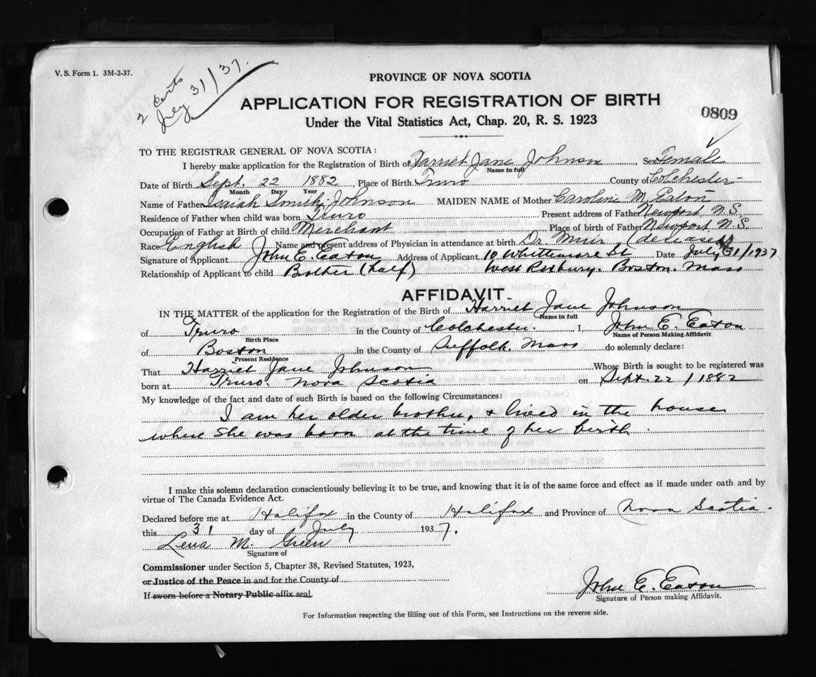 V. S. Form 1. 3M-2-37.
2 Certs
July 31/37.
PROVINCE OF NOVA SCOTIA
APPLICATION FOR REGISTRATION OF BIRTH
0809
Under the Vital Statistics Act, Chap. 20, R. S. 1923
TO THE REGISTRAR GENERAL OF NOVA SCOTIA:
I hereby make application for the Registration of Birth of Harriet Jane Johnson Sex Female
Name in full
Date of Birth Sept. 22 1882, Place of Birth Truro County of Colchester
Month Day Year
Name of Father Isaiah Smith Johnson MAIDEN NAME of Mother Caroline M.
Residence of Father when child was born Truro Present address of Father Newport N.S.
Occupation of Father at Birth of child Merchant Place of birth of Father Newport N.S.
Race English Name and present address of Physician in attendance at birth Dr. Muir (deceased)
Signature of Applicant John E. Eaton Address of Applicant 10 Whitemore St Date July 31/1937
Relationship of Applicant to child Brother (half) West Roxbury. Boston. Mass
AFFIDAVIT
IN THE MATTER of the application for the Registration of the Birth of Harriet Jane Johnson
Name in full
of Truro in the County of Colchester. I, John E. Eaton
Birth Place Name of Person Making Affidavit
of Boston in the County of Suffolk, Mass do solemnly declare:
Present Residence
That Harriet Jane Johnson Whose Birth is sought to be registered was
born at Truro Nova Scotia on Sept. 22/1882
My knowledge of the fact and date of such Birth is based on the following Circumstances:
I am her older brother, & lived in the house
where she was born at the time of her birth.
I make this solemn declaration conscientiously believing it to be true, and knowing that it is of the same force and effect as if made under oath and by
virtue of The Canada Evidence Act.
Declared before me at Halifax in the County of Halifax and Province of Nova Scotia.
this 31 day of July 1937.
Lena M. Green
Signature of
Commissioner under Section 5, Chapter 38, Revised Statutes, 1923,
or Justice of the Peace in and for the County of
If sworn before a Notary Public affix seal.
John E. Eaton
Signature of Person making Affidavit.
For Information respecting the filling out of this Form, see Instructions on the reverse side.